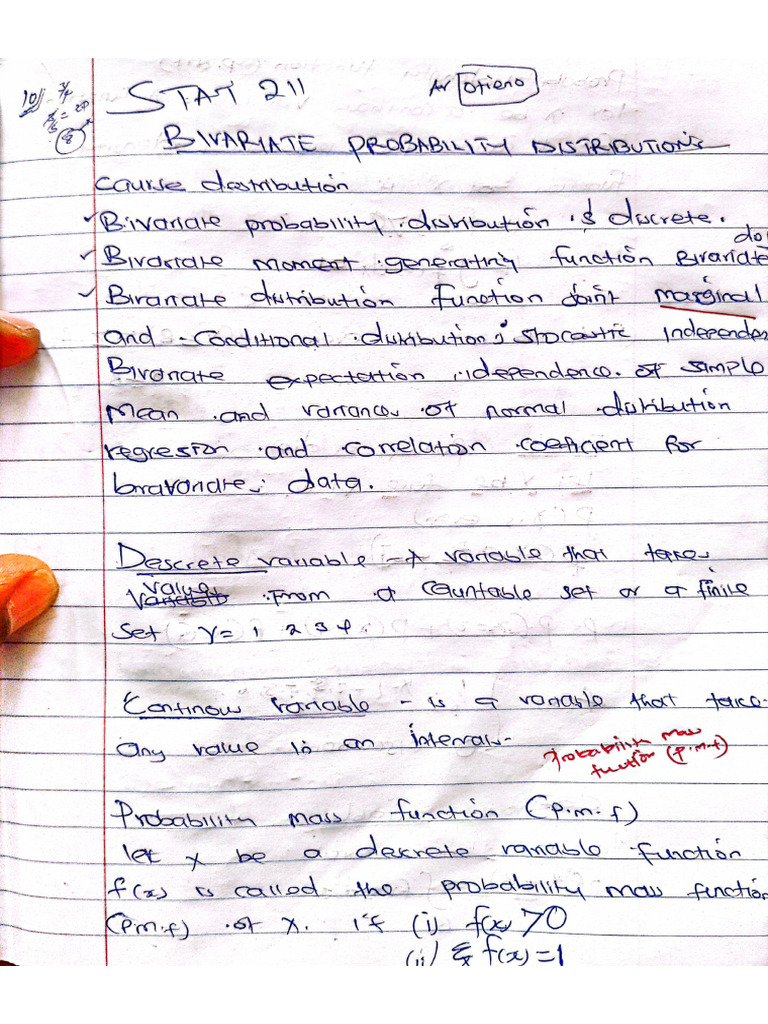 STAT 211
Ar Otieno
BIVARIATE PROBABILITY DISTRIBUTIONS
Course distribution
Bivariate probability distribution & discrete.
Bivariate moment generating function Bivariate
Bivariate distribution function joint marginal
and conditional distributions stocastic independen
Bivariate expectation independence of sample
mean and variance of normal distribution
regression and correlation coeficient for
bravariate data.
Descrete variable - A variable that takes
value from a countable set or a finite
set Y = 1 2 3 4.
Continow variable - is a variable that take
any value in an interval.
Probability mass
function (p.m.f)
Probability mass function (p.m.f)
let x be a descrete variable function
f(x) is called the probability mass function
(p.m.f) of x. if (i) f(x) >0
(ii) Σ f(x) = 1
x